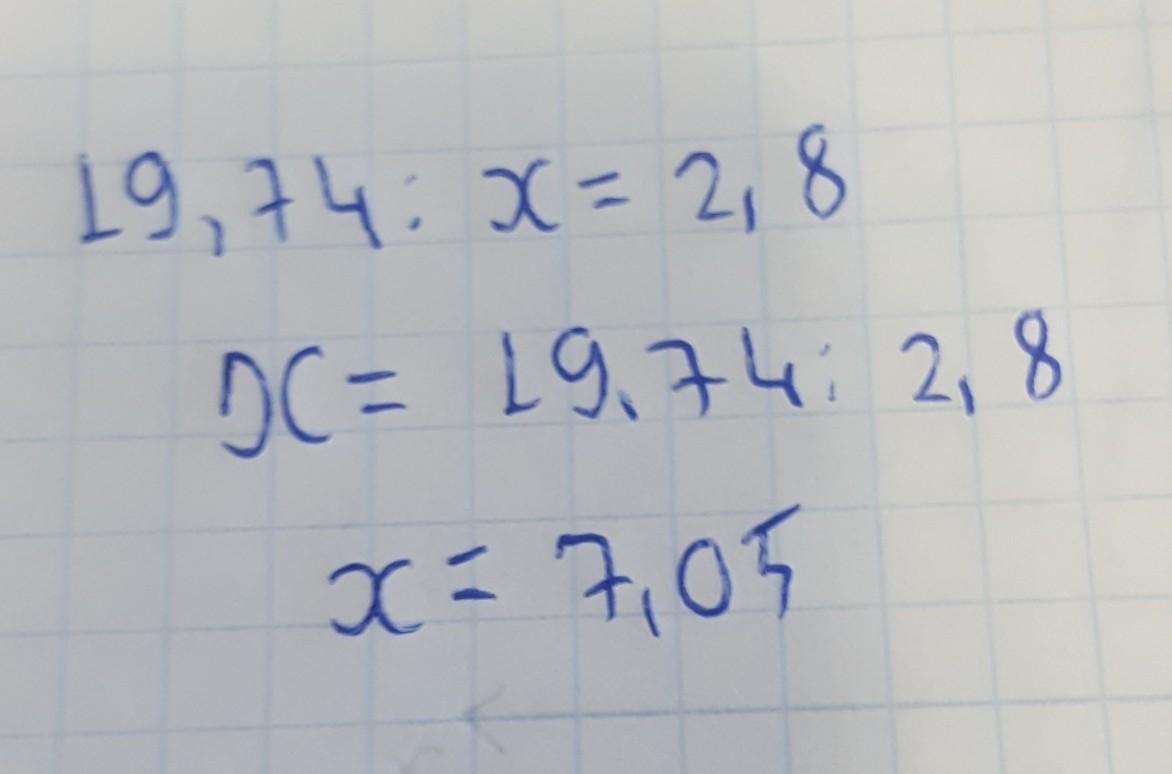 19,74 : x = 2,8
x = 19,74 : 2,8
x = 7,05